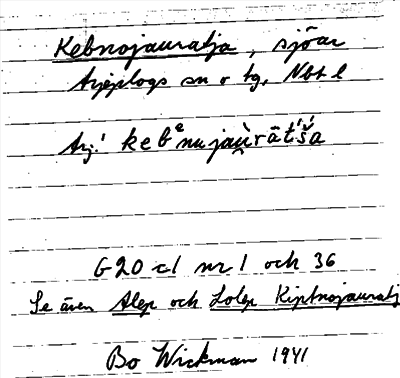 Kebnojauratja, sjöar
Arjeplogs sn o tg, Nbt l
Arj.! kebᵉnujau̯rāt́š́a
G20 c1 nr 1 och 36
Se även Alep och Lolep Kiptnojauratj
Bo Wickman 1941